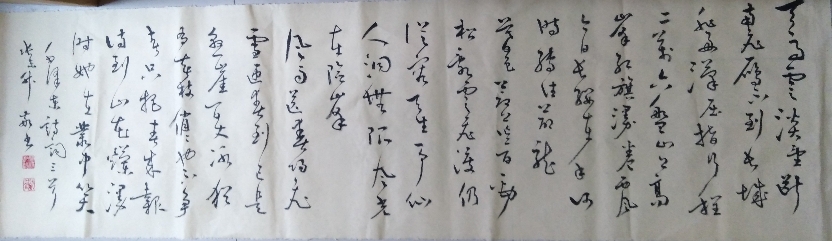 天高云淡望断
南飞雁不到长城
非好汉屈指行程
二万六盘山上高
峰红旗漫卷西风
今日长缨在手何
时缚住苍龙
暮色苍茫看劲
松乱云飞渡仍
从容天生一个仙
人洞无限风光
在险峰
风雨送春归飞
雪迎春到已是
悬崖百丈冰犹
有花枝俏俏也不争
春只把春来报
待到山花烂漫
时她在丛中笑
毛泽东诗词三首